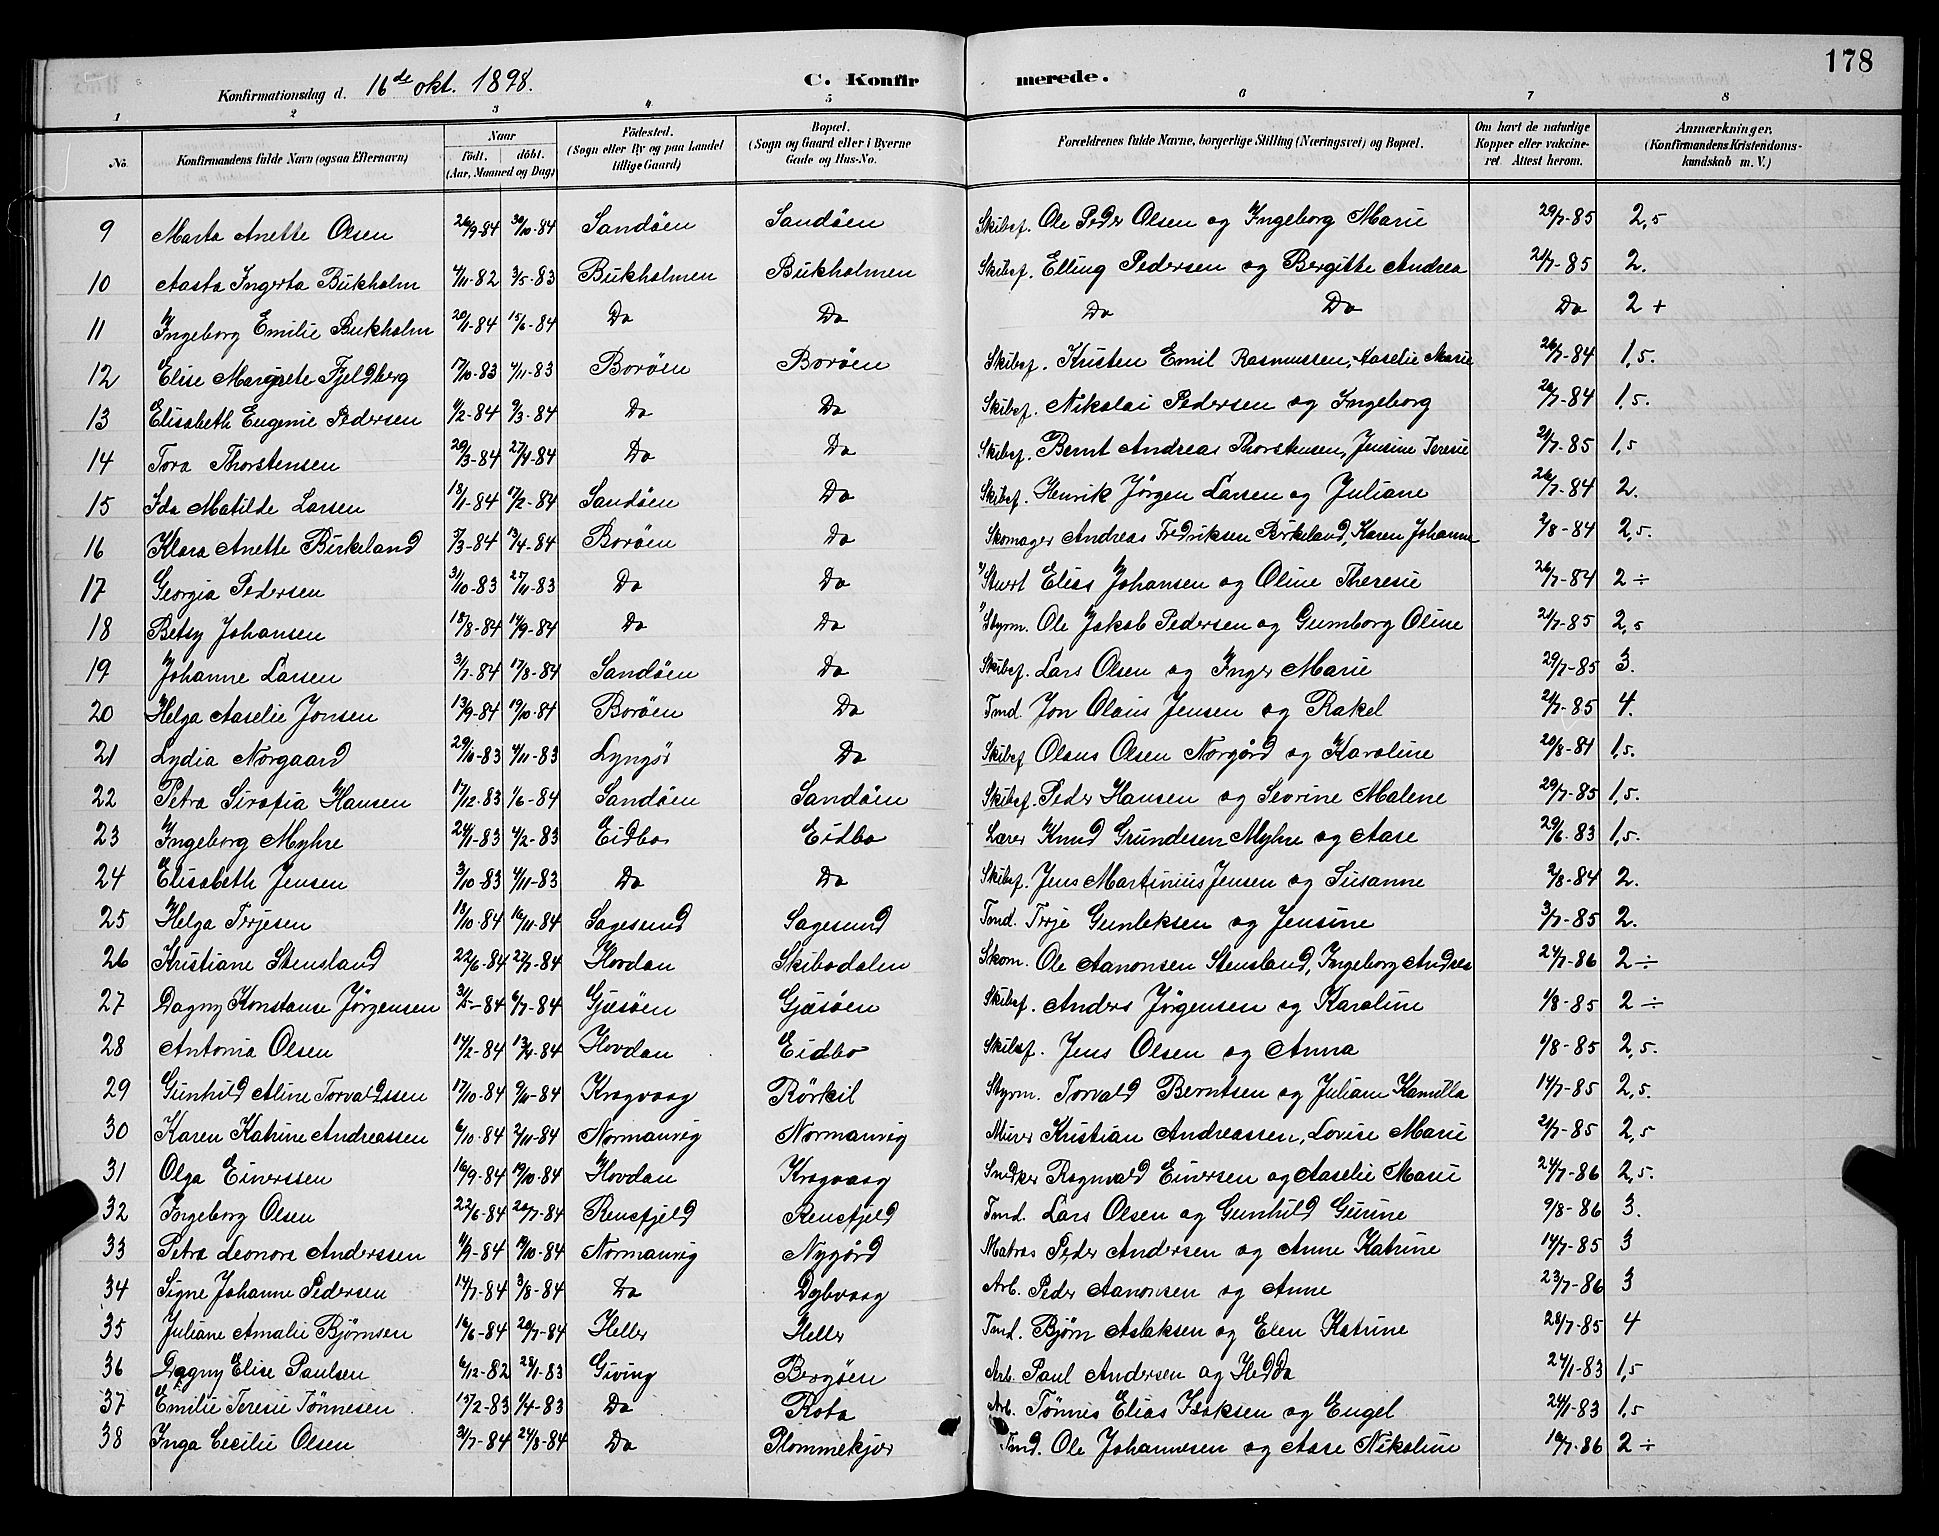 178
Konfirmationsdag d. 16de okt. 1898. C. Konfirmerede.
1 2 3 4 5 6 7 8
No. Konfirmandens fulde Navn (ogsaa Efternavn) Naar födt. döbt. (Aar, Maaned og Dag) Födested. (Sogn eller By og paa Landet tillige Gaard) Bopæl. (Sogn og Gaard eller i Byerne Gade og Hus-No. Forældrenes fulde Navne, borgerlige Stilling (Næringsvei) og Bopæl. Om havt de naturlige Kopper eller vakcineret Attest herom. Anmærkninger. (Konfirmandens Kristendomskundskab m. V.)
9 Marta Anette Olsen 26/9-84 30/10-84 Sandöen Sandöen Skibsf. Ole Peder Olsen og Ingeborg Marie 29/7-85 2,5
10 Aasta Ingerta Bukholm 4/11-82 3/5-83 Bukholmen Bukholmen Skibsf. Elling Pedersen og Bergitte Andrea 21/7-85 2.
11 Ingeborg Emilie Bukholm 20/1-84 15/6-84 Do Do Do Do Do 2 +
12 Elise Margrete Fjeldberg 17/10-83 4/11-83 Boröen Boröen Skibsf. Kristen Emil Rasmussen, Aaselie Marie 26/7-84 1,5.
13 Elisabeth Eugenie Pedersen 11/2-84 9/3-84 Do Do Skibsf. Nikolai Pedersen og Ingeborg 26/7-84 1,5.
14 Tora Thorstensen 20/3-84 27/4-84 Do Do Skibsf. Bernt Andreas Thorstensen, Jensine Teresie 21/7-85 1,5
15 Ida Matilde Larsen 18/1-84 17/2-84 Sandöen Do Skibsf. Henrik Jörgen Larsen og Juliane 26/7-84 2.
16 Klara Anette Birkeland 5/3-84 13/4-84 Boröen Do Skomager Andreas Fredriksen Birkeland, Karen Johanne 2/8-84 2,5.
17 Georgia Pedersen 31/10-83 25/11-83 Do Do Stuert Elias Johansen og Oline Theresie 26/7-84 2 ÷
18 Betsy Johansen 18/8-84 14/9-84 Do Do Styrm. Ole Jakob Pedersen og Gumborg Oline 21/7-85 2,5
19 Johanne Larsen 3/7-84 17/8-84 Sandöen Do Skibsf. Lars Olsen og Inger Marie 29/7-85 3.
20 Helga Aaselie Jonsen 13/9-84 19/10-84 Boröen Do Tmd. Jon Olaus Jensen og Rakel 21/7-85 4.
21 Lydia Norgaard 29/10-83 4/11-83 Lyngör Do Skibsf Olaus Olsen Norgård og Karoline 20/8-84 1,5.
22 Petra Sirafia Hansen 17/12-83 1/6-84 Sandöen Sandöen Skibsf. Peder Hansen og Sevrine Malene 29/7-85 1,5.
23 Ingeborg Myhre 24/1-83 4/2-83 Eidbo Eidbo Lærer Knud Grundesen Myhre og Aase 29/6-83 1,5.
24 Elisabeth Jensen 3/10-83 4/11-83 Do Do Skibsf. Jens Martinius Jensen og Susanne 2/8-84 2.
25 Helga Terjesen 13/10-84 16/11-84 Sagesund Sagesund Tmd. Terje Gunleksen og Jensine 3/7-85 2.
26 Kristiane Stensland 22/6-84 27/7-84 Hovdan Skibodalen Skom. Ole Aanonsen Stensland, Ingeborg Andrea 24/7-86 2 ÷
27 Dagny Konstanse Jörgensen 31/5-84 6/7-84 Gjæsöen Gjæsöen Skibsf. Anders Jörgensen og Karoline 1/8-85 2 ÷
28 Antonia Olsen 14/2-84 13/4-84 Hovdan Eidbo Skibsf. Jens Olsen og Anna 1/8-85 2,5.
29 Gunhild Aline Torvaldssen 17/10-84 9/11-84 Kragvaag Rörkil Styrm. Torvald Berntsen og Juliane Kamilla 14/7-85 2,5.
30 Karen Katrine Andreassen 6/10-84 2/11-84 Normanvig Normanvig Murer Kristian Andreassen, Lovise Marie 21/7-85 2,5
31 Olga Einerssen 16/9-84 19/10-84 Hovdan Kragvaag Snedker Ragnvald Einersen og Aaselie Marie 24/7-86 2,5.
32 Ingeborg Olsen 22/6-84 20/7-84 Renefjeld Renefjeld Tmd. Lars Olsen og Gunhild Gurine 9/8-86 3.
33 Petra Leonora Anderssen 11/9-84 19/10-84 Normanvig Nygård Matros Peder Andersen og Anne Katrine 14/7-85 3
34 Signe Johanne Pedersen 14/7-84 3/8-84 Do Dybvaag Arb. Peder Aanonsen og Anne 23/7-86 3
35 Juliane Amalie Björnsen 16/6-84 20/7-84 Heller Heller Tmd. Björn Aslaksen og Elen Katrine 28/7-85 4
36 Dagny Elise Paulsen 6/12-82 28/1-83 Giving Bergöen Arb. Paul Andersen og Hedda 24/1-83 1,5
37 Emilie Teresie Tönnesen 15/2-83 1/4-83 Do Rota Arb. Tönnes Elias Isaksen og Engel 24/1-83 1,5
38 Inga Cecilie Olsen 31/7-84 24/8-84 Do Plommekjær Tmd. Ole Johannesen og Aase Nikoline 10/7-86 2 ÷